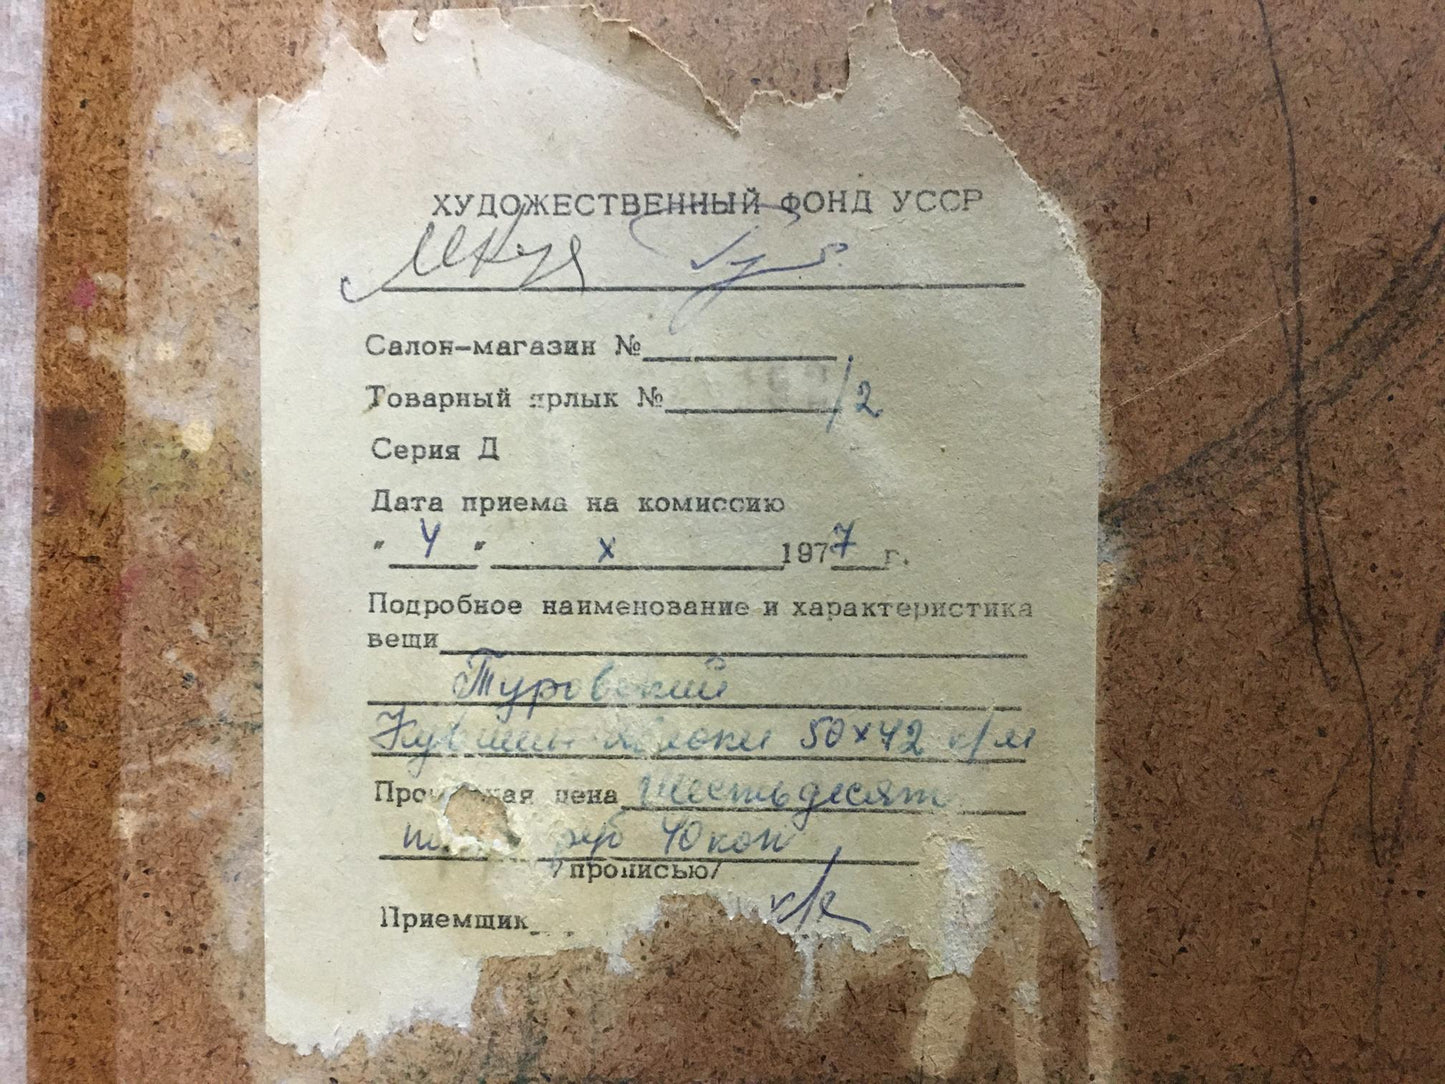 ХУДОЖЕСТВЕННЫЙ ФОНД УССР
Салон-магазин №
Товарный ярлык № /2
Серия Д
Дата приема на комиссию
" 4 " X 1977 г.
Подробное наименование и характеристика
вещи
Туровский
Кувшин яблоки 50х42 к/м
цена шестьдесят
руб 40 коп
/прописью/
Приемщик